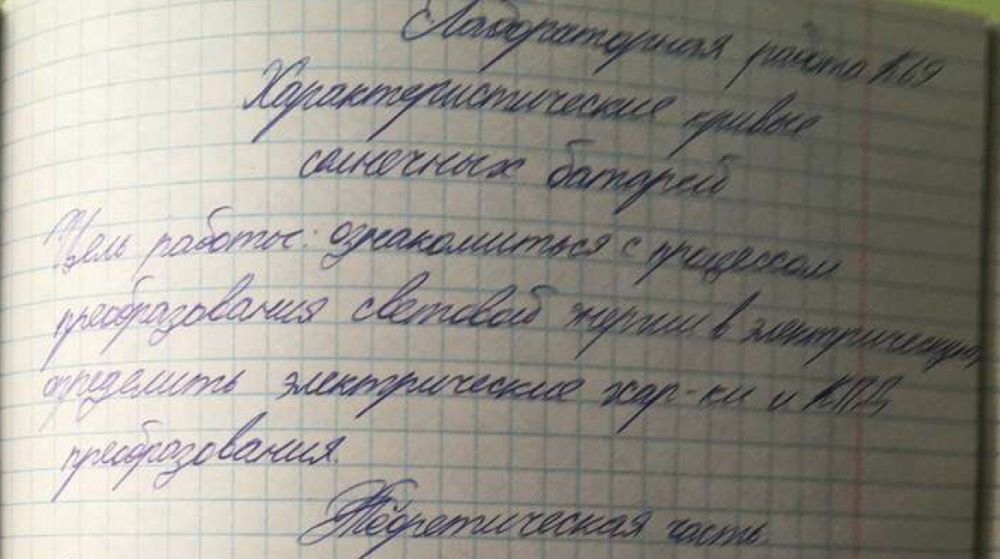 Лабораторная работа К69
Характеристические кривые
солнечных батарей
Цель работы: ознакомиться с процессом
преобразования световой энергии в электрическую,
определить электрические хар-ки и КПД
преобразования.
Теоретическая часть